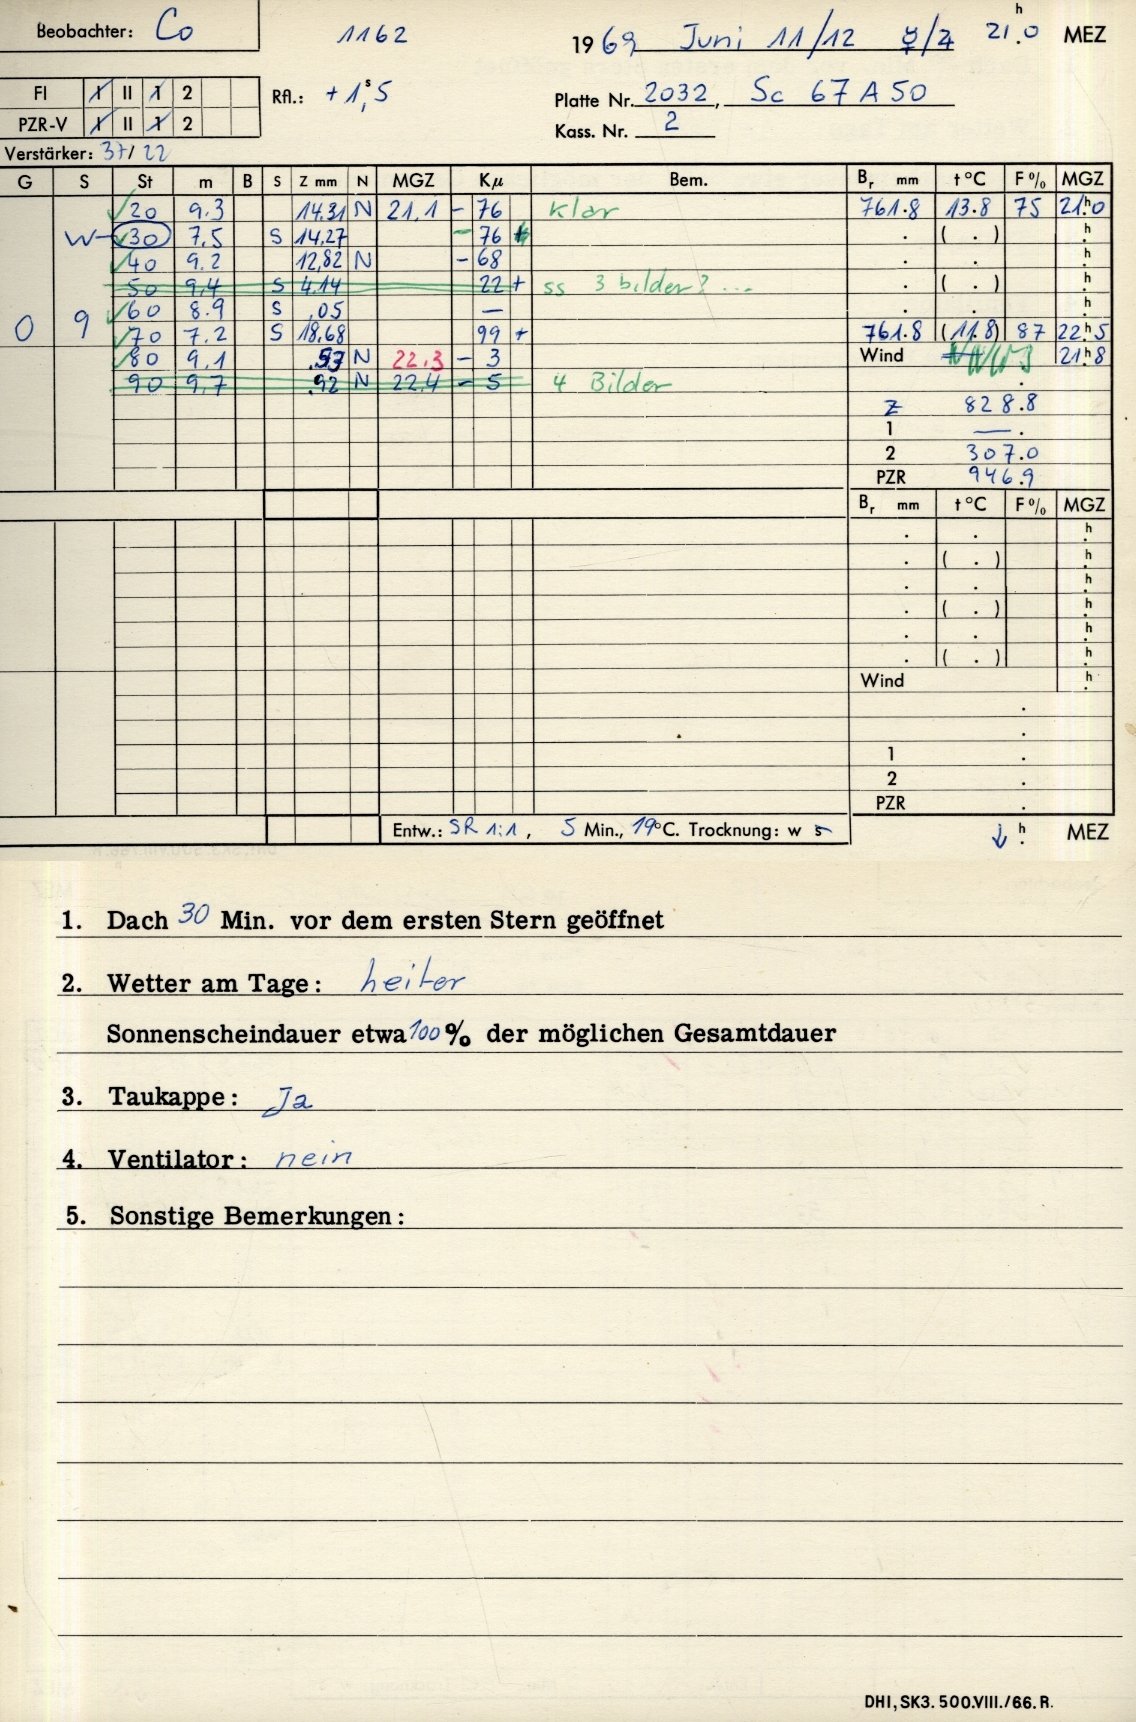 Beobachter: Co 1162 1969 Juni 11/12 ☿/♃ 21ʰ.0 MEZ
FI I II 1 2 Rfl.: +1ˢ,5 Platte Nr. 2032, Sc 67 A 50
PZR-V I II 1 2 Kass. Nr. 2
Verstärker: 37/22
G S St m B S Z mm N MGZ Kμ Bem. Bᵣ mm t °C F % MGZ
20 9.3 14.31 N 21,1 - 76 klar 761.8 13.8 75 21ʰ0
W 30 7,5 S 14,27 - 76 . ( . ) ʰ.
40 9.2 12,82 N - 68 . . ʰ.
50 9,4 S 4.14 22 + ss 3 bilder? ... . ( . ) ʰ.
60 8.9 S ,05 — . . ʰ.
0 9 70 7.2 S 18,68 99 + 761.8 (11.8) 87 22ʰ5
80 9,1 N 22.3 - 3 Wind 21ʰ8
90 9,7 .92 N 22,4 - 5 4 Bilder .
Z 828.8
1 — .
2 307.0
PZR 946.9
Bᵣ mm t °C F % MGZ
. . ʰ.
. ( . ) ʰ.
. . ʰ.
. ( . ) ʰ.
. . ʰ.
. ( . ) ʰ.
Wind ʰ.
.
.
1 .
2 .
PZR .
Entw.: SR 1:1, 5 Min., 19°C. Trocknung: w s ↓ ʰ. MEZ
1. Dach 30 Min. vor dem ersten Stern geöffnet
2. Wetter am Tage: heiter
Sonnenscheindauer etwa 100 % der möglichen Gesamtdauer
3. Taukappe: Ja
4. Ventilator: nein
5. Sonstige Bemerkungen:
DHI, SK3. 500. VIII. /66. R.